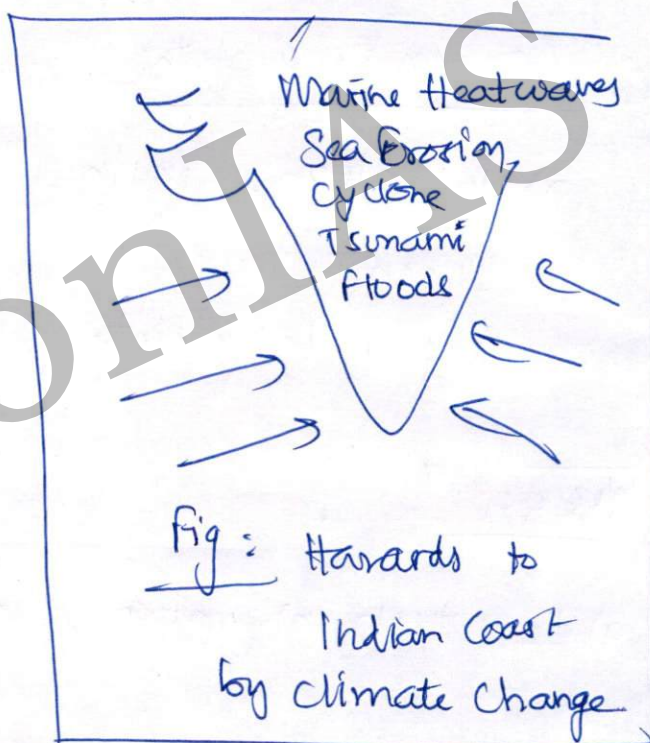 Marine Heatwaves
Sea Erosion,
Cyclone
Tsunami
Floods
Fig: Hazards to
Indian Coast
by Climate Change
onIAS